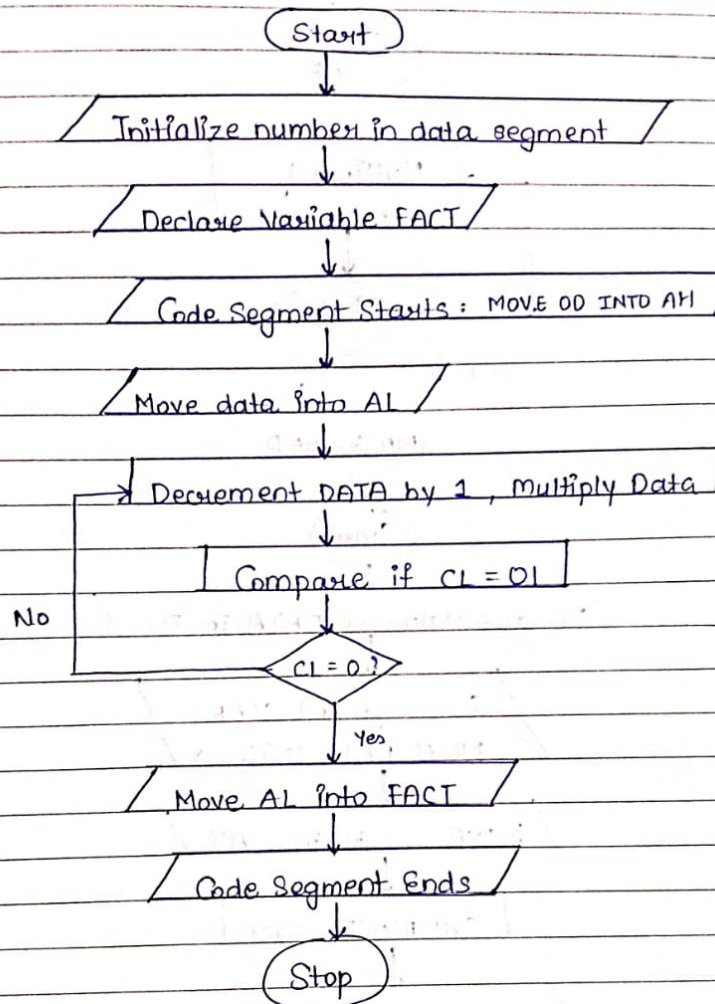 Start
Initialize number in data segment
Declare Variable FACT
Code Segment Starts : MOVE OD INTO AH
Move data into AL
Decrement DATA by 1 , Multiply Data
Compare if CL = 01
No
CL = 0 ?
Yes
Move AL into FACT
Code Segment Ends
Stop